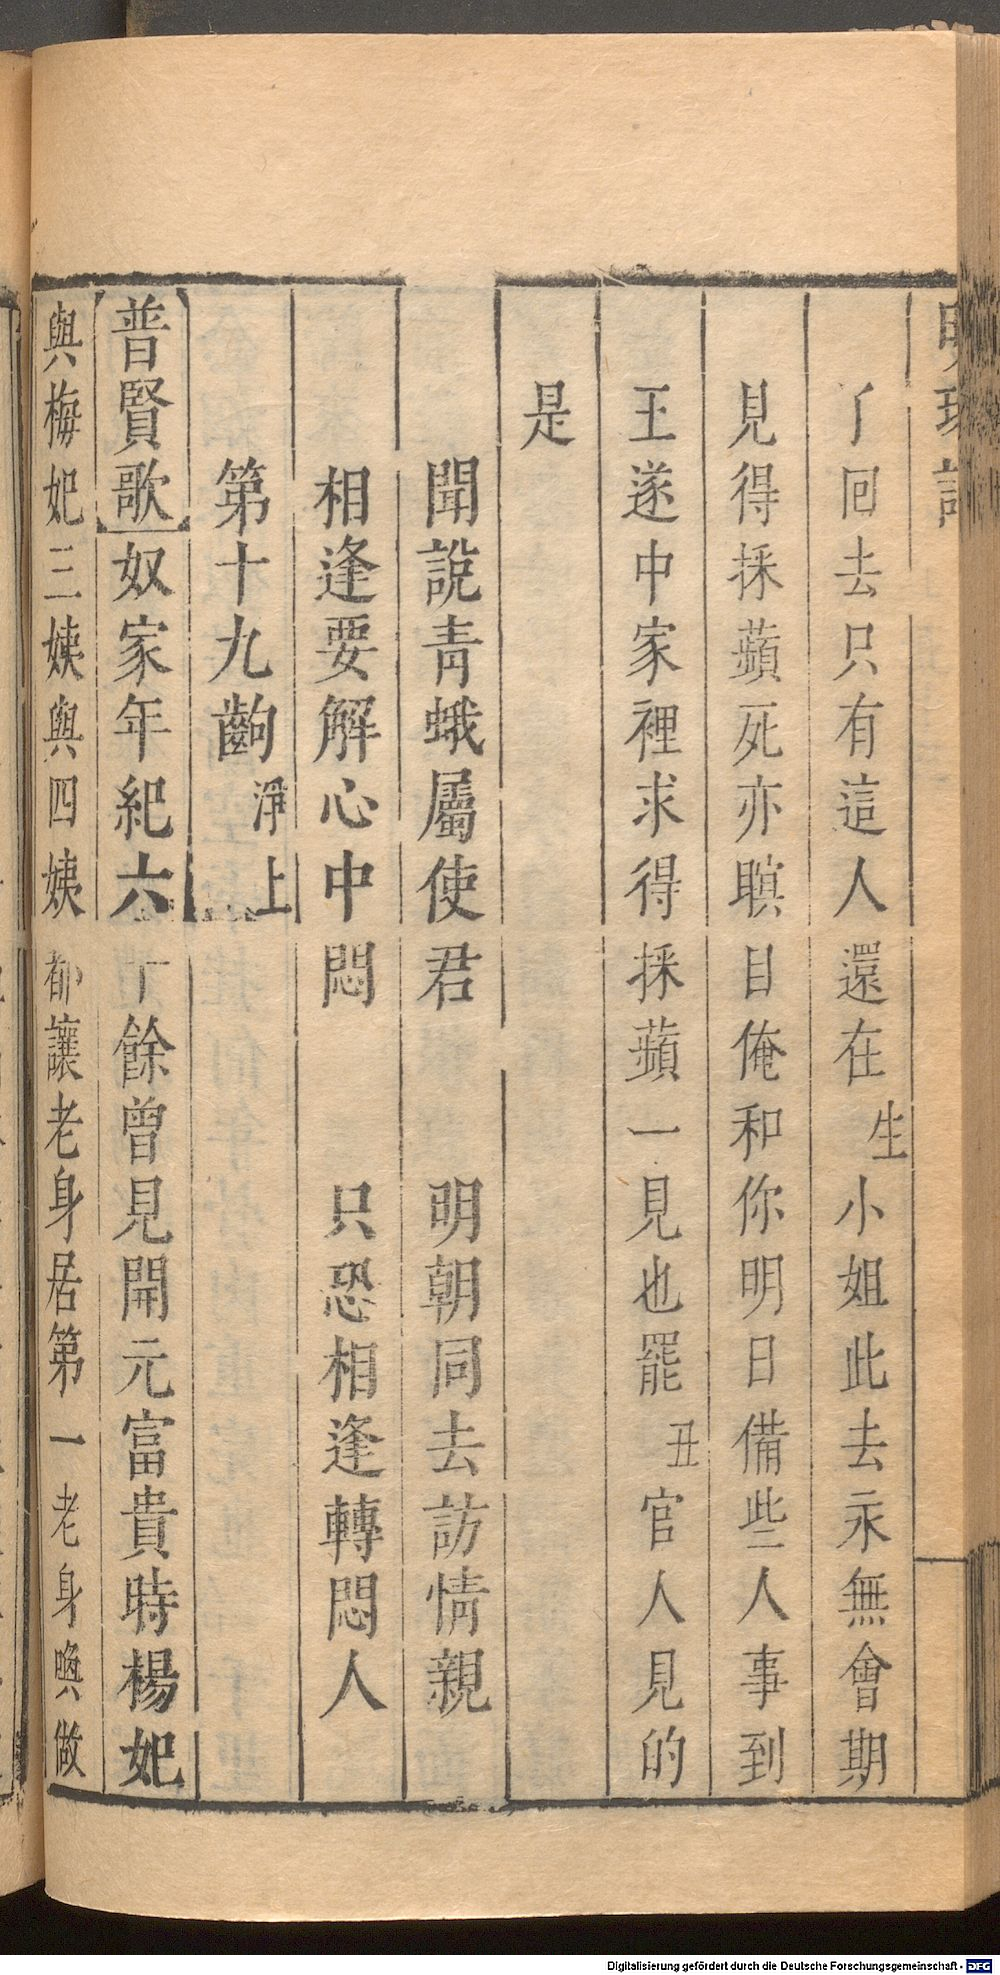 明珠記
了回去只有這人還在生小姐此去永無會期
見得採蘋死亦瞑目俺和你明日備些人事到
王遂中家裡求得採蘋一見也罷丑官人見的
是
聞說青蛾屬使君 明朝同去訪情親
相逢要解心中悶 只恐相逢轉悶人
第十九齣淨上
普賢歌奴家年紀六十餘曾見開元富貴時楊妃
與梅妃三姨與四姨都讓老身居第一老身喚做
Digitalisierung gefördert durch die Deutsche Forschungsgemeinschaft - DFG